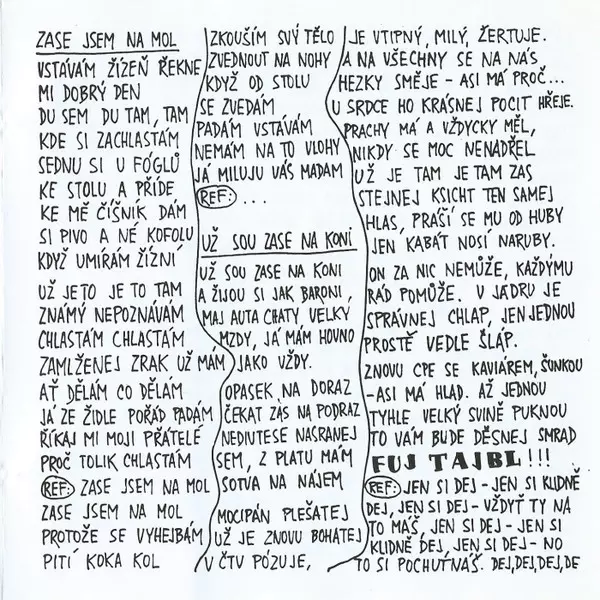 ZASE JSEM NA MOL
VSTÁVÁM ŽÍZEŇ ŘEKNE
MI DOBRÝ DEN
DU SEM DU TAM, TAM
KDE SI ZACHLASTÁM
SEDNU SI U FÓGLŮ
KE STOLU A PŘÍDE
KE MĚ ČÍŠNÍK DÁM
SI PIVO A NÉ KOFOLU
KDYŽ UMÍRÁM ŽÍZNÍ
UŽ JETO JE TO TAM
ZNÁMÝ NEPOZNÁVÁM
CHLASTÁM CHLASTÁM
ZAMLŽENEJ ZRAK UŽ MÁM
AŤ DĚLÁM CO DĚLÁM
JÁ ZE ŽIDLE POŘÁD PADÁM
ŘÍKAJ MI MOJI PŘÁTELÉ
PROČ TOLIK CHLASTÁM
REF: ZASE JSEM NA MOL
ZASE JSEM NA MOL
PROTOŽE SE VYHEJBÁM
PITÍ KOKA KOL
ZKOUŠÍM SVÝ TĚLO
ZVEDNOUT NA NOHY
KDYŽ OD STOLU
SE ZVEDÁM
PADÁM VSTÁVÁM
NEMÁM NA TO VLOHY
JÁ MILUJU VÁS MADAM
REF: ...
UŽ SOU ZASE NA KONI
UŽ SOU ZASE NA KONI
A ŽIJOU SI JAK BARONI,
MAJ AUTA CHATY VELKÝ
MZDY, JÁ MÁM HOVNO
JAKO VŽDY.
OPASEK NA DORAZ
ČEKAT ZAS NA PODRAZ
NEDIVTESE NASRANEJ
SEM, Z PLATU MÁM
SOTVA NA NÁJEM
MOCIPÁN PLEŠATEJ
UŽ JE ZNOVU BOHATEJ
V ČTV PÓZUJE,
JE VTIPNÝ, MILÝ, ŽERTUJE.
A NA VŠECHNY SE NA NÁS
HEZKY SMĚJE - ASI MÁ PROČ...
U SRDCE HO KRÁSNEJ POCIT HŘEJE.
PRACHY MÁ A VŽDYCKY MĚL,
NIKDY SE MOC NENADŘEL
UŽ JE TAM JE TAM ZAS
STEJNEJ KSICHT TEN SAMEJ
HLAS, PRÁŠÍ SE MU OD HUBY
JEN KABÁT NOSÍ NARUBY.
ON ZA NIC NEMŮŽE, KAŽDÝMU
RÁD POMŮŽE. V JÁDRU JE
SPRÁVNEJ CHLAP, JEN JEDNOU
PROSTĚ VEDLE ŠLÁP.
ZNOVU CPE SE KAVIÁREM, ŠUNKOU
-ASI MÁ HLAD. AŽ JEDNOU
TYHLE VELKÝ SVINĚ PUKNOU
TO VÁM BUDE DĚSNEJ SMRAD
FUJ TAJBL!!!
REF: JEN SI DEJ - JEN SI KLIDNĚ
DEJ, JEN SI DEJ - VŽDYŤ TY NA
TO MÁŠ, JEN SI DEJ - JEN SI
KLIDNĚ DEJ, JEN SI DEJ - NO
TO SI POCHUTNÁŠ. DEJ,DEJ,DEJ,DE